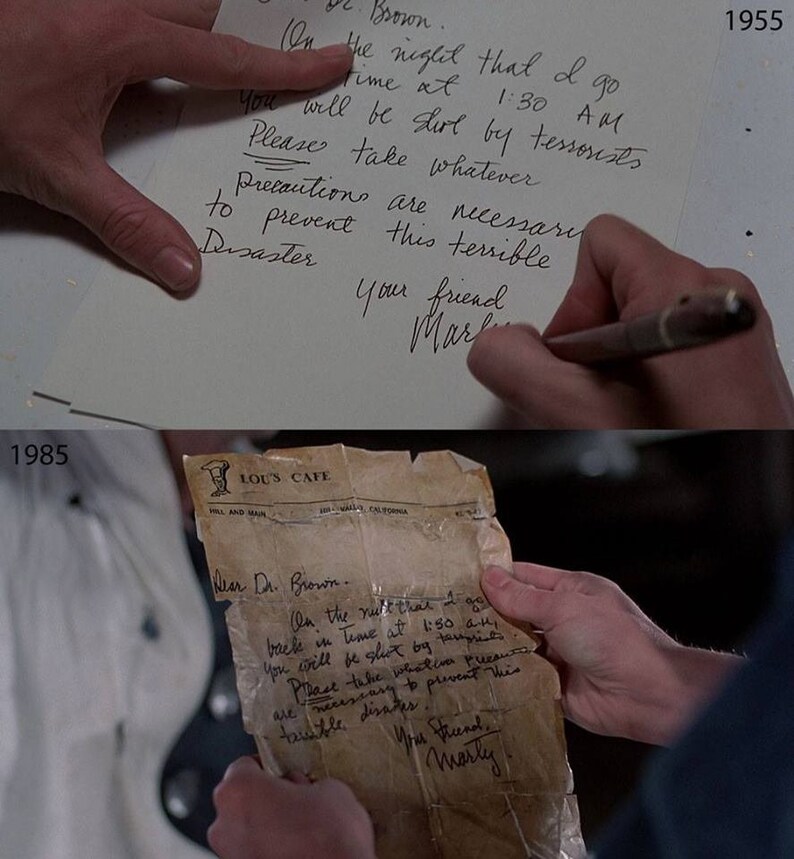 1955
Dr. Brown.
On the night that I go
time at 1:30 AM
You will be shot by terrorists
Please take whatever
Precautions are necessary
to prevent this terrible
Disaster
Your friend
Marty
1985
LOU'S CAFE
HILL AND MAIN HILL VALLEY, CALIFORNIA
Dear Dr. Brown.
On the night that I go
back in time at 1:30 a.m,
you will be shot by terrorists.
Please take whatever precautions
are necessary to prevent this
terrible disaster.
Your Friend,
Marty.